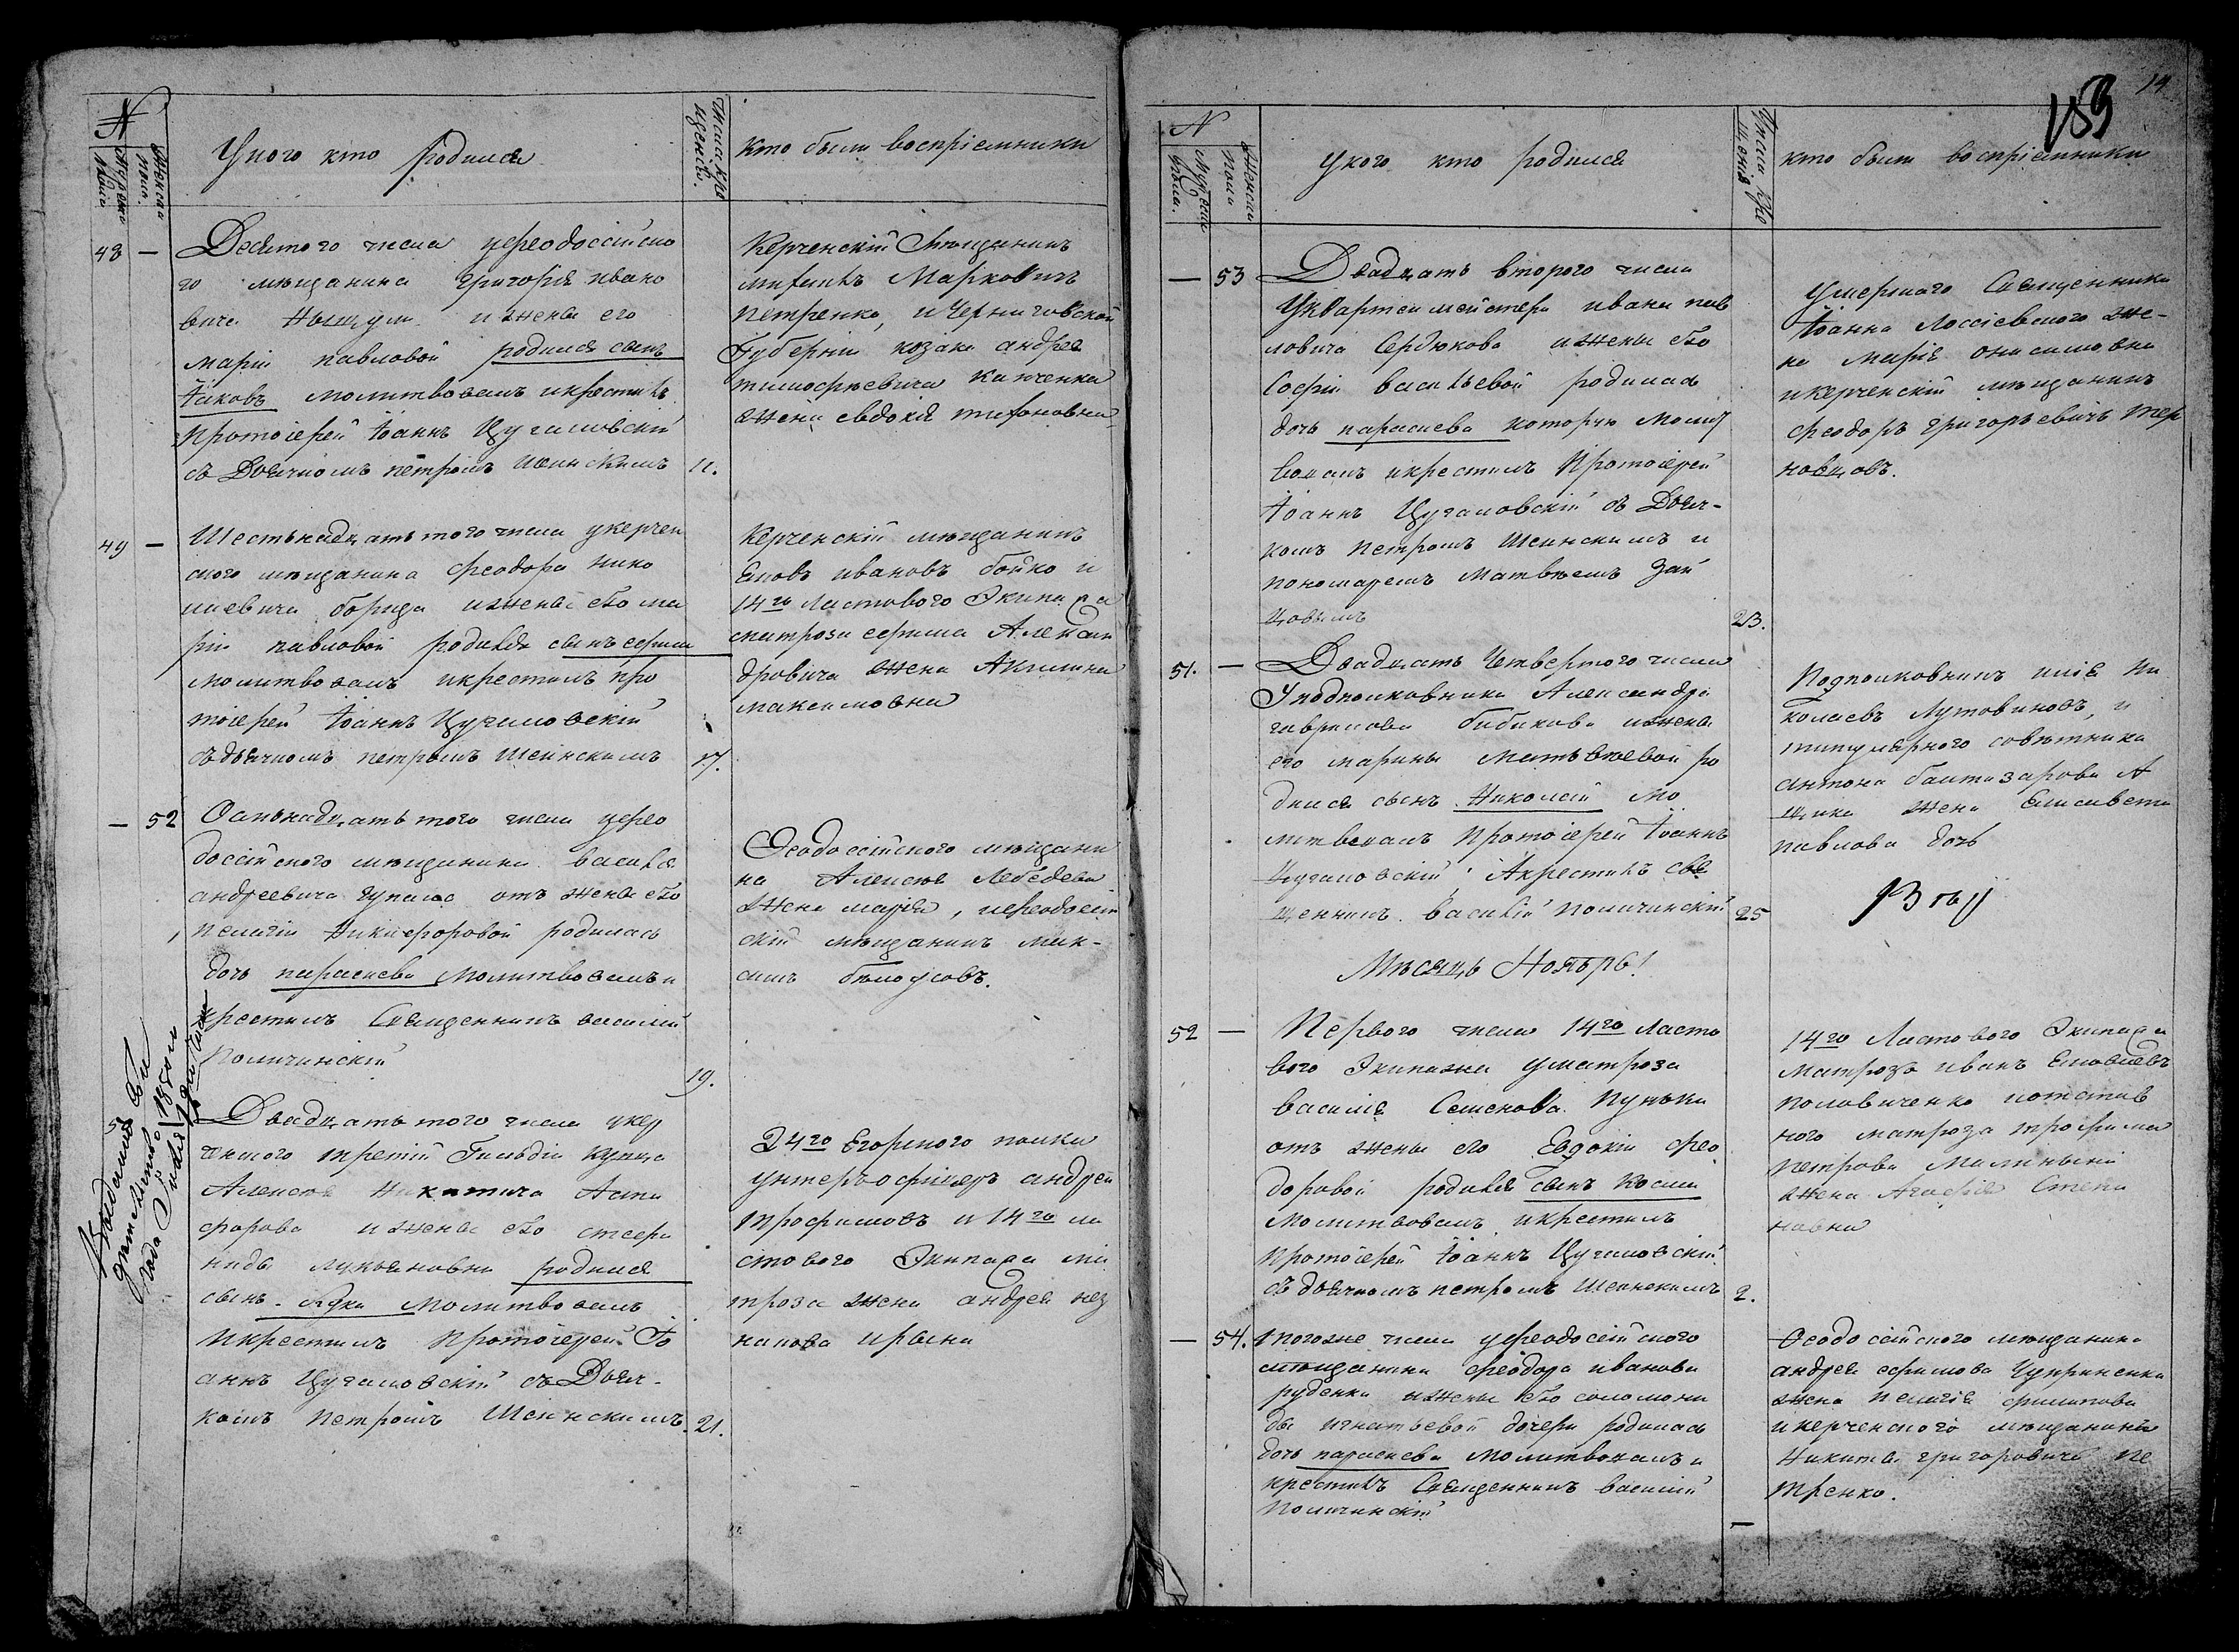 N
Мужска пола
Женска пола.
У кого кто родился
Числа кре
щенія.
Кто были воспріемники
48 —
Десятого числа уфеодоссійско
го мѣщанина григорія ивано
вича и жены его
маріи павловой родился сынъ
Іаковъ молитвовалъ икрестилъ
Протоіерей Іоаннъ Цугаловскій
съ Дьячкомъ петромъ Шеинскимъ
11.
Керченскій Мещанинъ
Марковичъ
петренко, и Черниговской
Губерніи козака андрея
тимофѣевича
жена евдокія тихоновна
49 —
Шестьнадцатьтого числа укерчен
ского мѣщанина феодора нико
лаевича изжены его ма
ріи павловой родился сынъ ефимъ
молитвовалъ икрестилъ про
тоіерей Іоаннъ Цугаловскій
съдьячкомъ петромъ Шеинскимъ
17.
Керченскій мѣщанинъ
Іаковъ ивановъ бойко и
14го Ластового Экипажа
матроза ефима Алексан
дровича жена Акилина
максимовна
— 52
Осмьнадцатьтого числа уфео
доссійского мѣщанина василія
андреевича отъ жены его
пелагіи Никифоровой родилась
дочь параскева Молитвовалъ и
крестилъ Священникъ василій
Поличинскій
19.
Феодоссійского мѣщани
на Алексѣя Лебедева
Жена марія, ифеодоссій
скій мѣщанинъ мак-
симъ бѣлоусовъ.
50
Двадцатьтого числа укер
ченского третій Гильдіи купца
Алексѣя Никитича
форова и жены его
ниды лукьяновны родился
сынъ Лука молитвовалъ
икрестилъ Протоіерей Іо
аннъ Цугаловскій съ Дьяч-
комъ петромъ Шеинскимъ.
21.
24го Егерского полка
унтеръ офицеръ андрей
трофимовъ и 14го ла
стового Экипажа ма
троза жена андрея нез
нанова ирына
1850го
года
159
14
N
Мужска пола.
Женска пола
У кого кто родился
Числа кре
щенія
кто были воспріемники
— 53
Двадцать второго числа
Уквартермейстера ивана пав
ловича Сердюкова изжены его
Софіи васильевой родилась
дочь параскева которую молит
вовалъ икрестилъ Протоіерей
Іоаннъ Цугаловскій съ Дьяч-
комъ петромъ Шеинскимъ и
пономаремъ Матвѣемъ Зай
цовымъ
23.
Умершаго Священника
Іоанна Лоссіевского же-
на марія онисимовна
икерченскій мѣщанинъ
феодоръ григорьевичъ тер
новцовъ.
51. —
Двадцать Четвертого числа
Уподполковника Александра
гаврилова бибикова изжены
его марины Матьвѣевой ро
дился сынъ Николай мо
литвовалъ Протоіерей Іоаннъ
Цугаловскій, Акрестилъ свя
щенникъ василій поличинскій
25
Подполковникъ илія ни
колаевъ Лутовиновъ, и
титулярного совѣтника
антона балтазарова А
щика жена Елисавета
павлова дочь
Мѣсяцъ Ноябрь!
52 —
Перваго числа 14го Ласто
вого Экипажа уматроза
василія Семенова
отъ жены его Евдокіи фео
доровой родился сынъ Косма
молитвовалъ икрестилъ
протоіерей Іоаннъ Цугаловскій
съ дьячкомъ петромъ Шеинскимъ
2.
14го Ластового Экипажа
матрозъ иванъ Іаковлевъ
половиченко иотстав
ного матроза трофима
петрова
жена Агафія Степа
новна
— 54.
Тогоже числа уфеодосійского
мѣщанина феодора иванова
руденки изжены его соломони
ды игнатьевой дочери родилась
дочь параскева Молитвовалъ и
крестилъ Священникъ василій
Поличинскій
—
Феодосійского мѣщанина
андрея ефимова Чуприненка
жена пелагія филипова
икерченского мѣщанина
Никита григоровича пе
тренко.